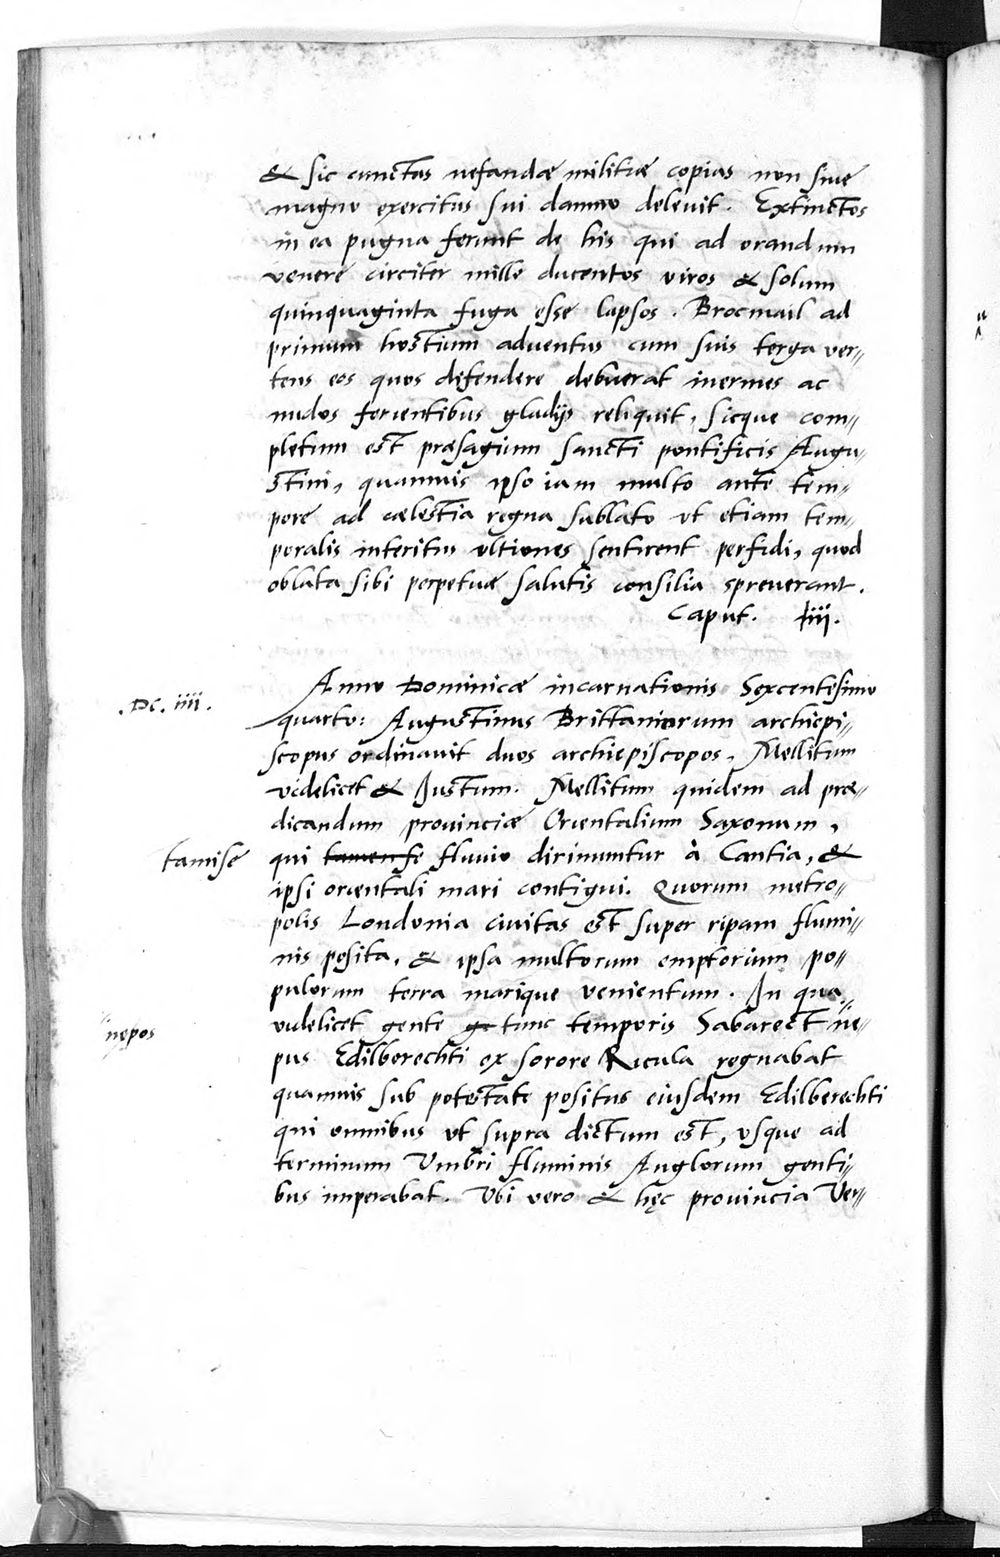 & sic cunctas nefandæ militiæ copias non sine
magno exercitus sui damno delevit. Extinctos
in ea pugna ferunt de his qui ad orandum
venere circiter mille ducentos viros & solum
quinquaginta fuga esse lapsos. Brocmail ad
primum hostium aduentus cum suis terga ver〃
tens eos quos defendere debuerat inermes ac
nudos ferientibus gladijs reliquit, sicque com〃
pletum est præsagium sancti pontificis Augu〃
stini, quamuis ipso iam multo ante tem〃
pore ad cælestia regna sublato vt etiam tem〃
poralis interitus vltiones sentirent perfidi, quod
oblata sibi perpetuæ salutis consilia spreuerant.
Caput. iiii.
Anno Dominicæ incarnationis Sexcentesimo
.DC. iiii.
quarto: Augustinus Brittaniarum archiepi〃
scopus ordinauit duos archiepiscopos, Mellitum
videlicet & Justum. Mellitum quidem ad præ〃
dicandum prouinciæ Orientalium Saxonum,
tamise
qui tamense fluuio dirimuntur à Cantia, &
ipsi orientali mari contigui. Quorum metro〃
polis Londonia ciuitas est super ripam flumi〃
nis posita, & ipsa multorum emptorium po〃
pulorum terra marique venientum. In qua
nepos
videlicet gente ge tunc temporis Sabarect ne〃
pus Edilberechti ex sorore Ricula regnabat
quamuis sub potestate positus eiusdem Edilberechti
qui omnibus vt supra dictum est, vsque ad
terminum Vmbri fluminis Anglorum genti〃
bus imperabat. Vbi vero & hęc prouincia Ver〃